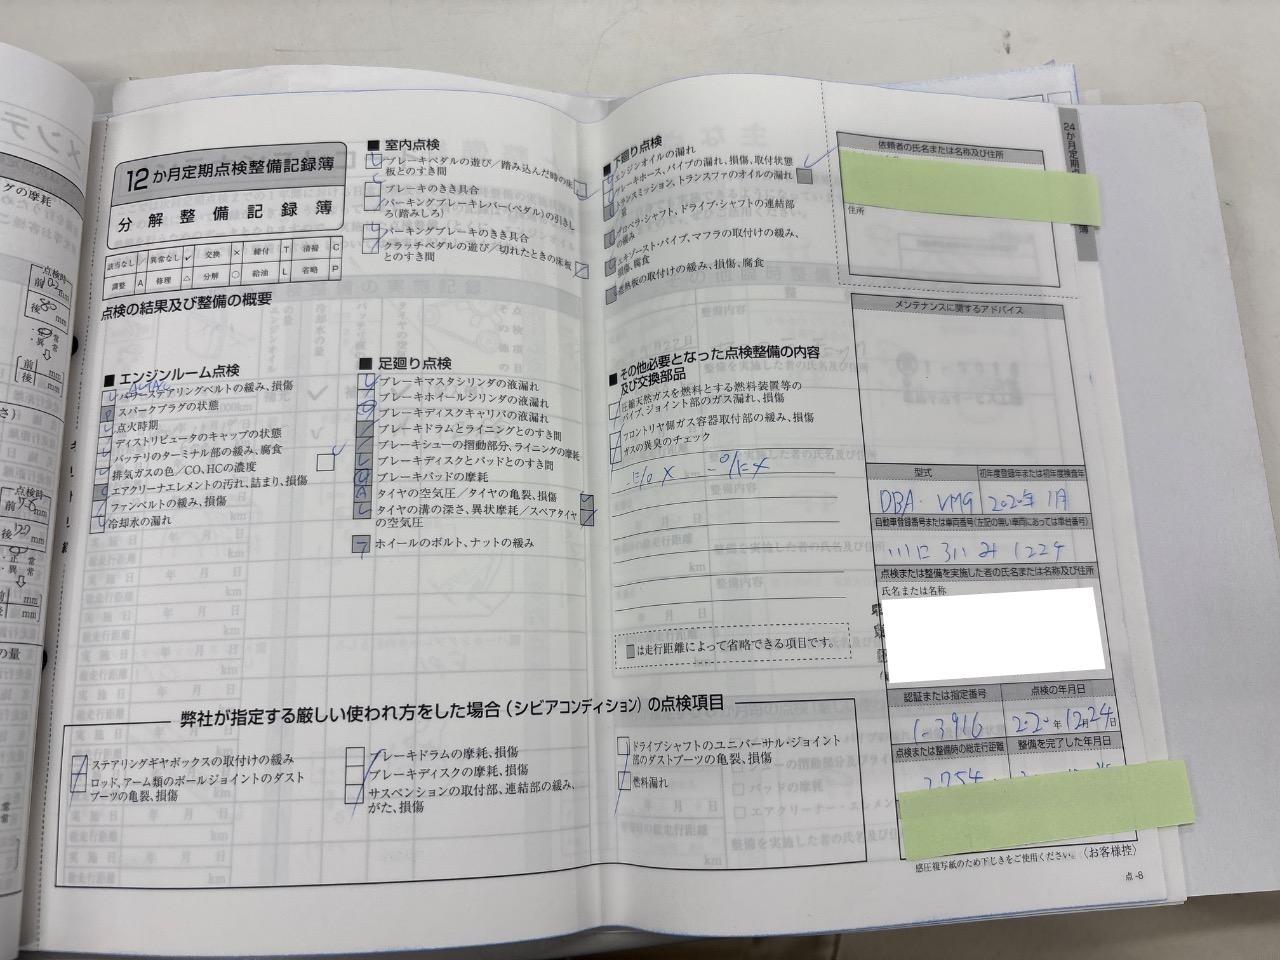 12か月定期点検整備記録簿
分解整備記録簿
該当なし / 異常なし ✓ 交換 × 締付 T 清掃 C
調整 A 修理 △ 分解 ○ 給油 L 省略 P
点検の結果及び整備の概要
■ エンジンルーム点検
パワーステアリングベルトの緩み、損傷
スパークプラグの状態
点火時期
ディストリビュータのキャップの状態
バッテリのターミナル部の緩み、腐食
排気ガスの色/CO、HCの濃度
エアクリーナエレメントの汚れ、詰まり、損傷
ファンベルトの緩み、損傷
冷却水の漏れ
■ 室内点検
ブレーキペダルの遊び/踏み込んだ時の床
板とのすき間
ブレーキのきき具合
パーキングブレーキレバー(ペダル)の引きし
ろ(踏みしろ)
パーキングブレーキのきき具合
クラッチペダルの遊び/切れたときの床板
とのすき間
■ 足廻り点検
ブレーキマスタシリンダの液漏れ
ブレーキホイールシリンダの液漏れ
ブレーキディスクキャリパの液漏れ
ブレーキドラムとライニングとのすき間
ブレーキシューの摺動部分、ライニングの摩耗
ブレーキディスクとパッドとのすき間
ブレーキパッドの摩耗
タイヤの空気圧/タイヤの亀裂、損傷
タイヤの溝の深さ、異状摩耗/スペアタイヤ
の空気圧
ホイールのボルト、ナットの緩み
■ 下廻り点検
エンジンオイルの漏れ
ブレーキホース、パイプの漏れ、損傷、取付状態
トランスミッション、トランスファのオイルの漏れ
量
プロペラ・シャフト、ドライブ・シャフトの連結部
の緩み
エキゾースト・パイプ、マフラの取付けの緩み、
損傷、腐食
遮熱板の取付けの緩み、損傷、腐食
■ その他必要となった点検整備の内容
及び交換部品
圧縮天然ガスを燃料とする燃料装置等の
パイプ、ジョイント部のガス漏れ、損傷
フロントリヤ側ガス容器取付部の緩み、損傷
ガスの異臭のチェック
は走行距離によって省略できる項目です。
弊社が指定する厳しい使われ方をした場合(シビアコンディション)の点検項目
ステアリングギヤボックスの取付けの緩み
ロッド、アーム類のボールジョイントのダスト
ブーツの亀裂、損傷
ブレーキドラムの摩耗、損傷
ブレーキディスクの摩耗、損傷
サスペンションの取付部、連結部の緩み、
がた、損傷
ドライブシャフトのユニバーサル・ジョイント
部のダストブーツの亀裂、損傷
燃料漏れ
依頼者の氏名または名称及び住所
住所
メンテナンスに関するアドバイス
型式 初年度登録年または初年度検査年
DBA-VM9 2020年 1月
自動車登録番号または車両番号(左記の無い車両にあっては車台番号)
川口 311 み 1224
点検または整備を実施した者の氏名または名称及び住所
氏名または名称
認証または指定番号 点検の年月日
1-3916 2020年 12月24日
点検または整備時の総走行距離 整備を完了した年月日
2754
感圧複写紙のため下じきをご使用ください。(お客様控)
点-8
24か月定期点
簿
点検時
前 mm
後 mm
グの摩耗